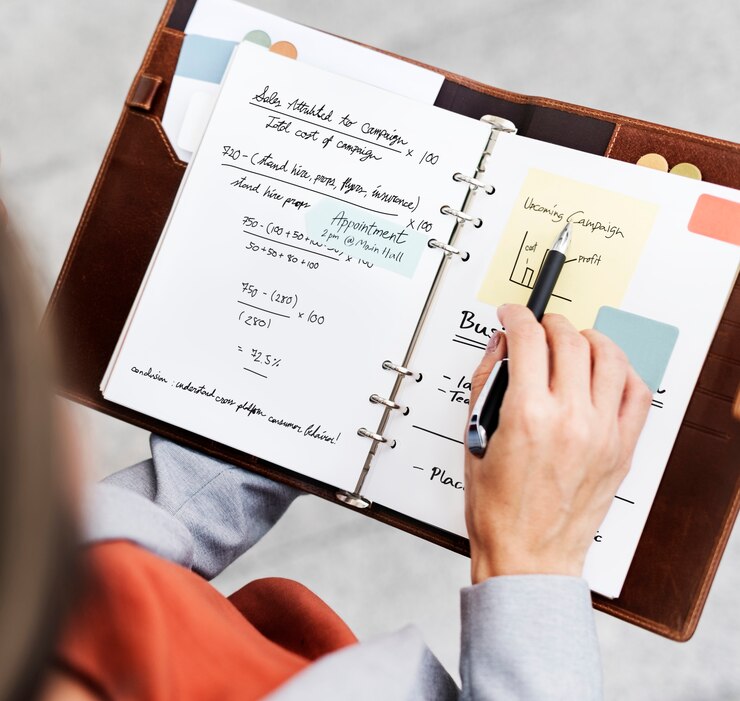 Sales Attributed to Campaign
Total cost of campaign
x 100
720 - (stand hire, props, flyers, insurance)
x 100
stand hire props
Appointment
2 pm @ Main Hall
750 - (100 + 50 +
x 100
50 + 50 + 80 + 100
750 - (280)
(280)
x 100
= 72.5%
conclusion : understand cross platform consumer behavior!
Upcoming Campaign
cost
profit
Bus
-
- Tea
- Plac
c